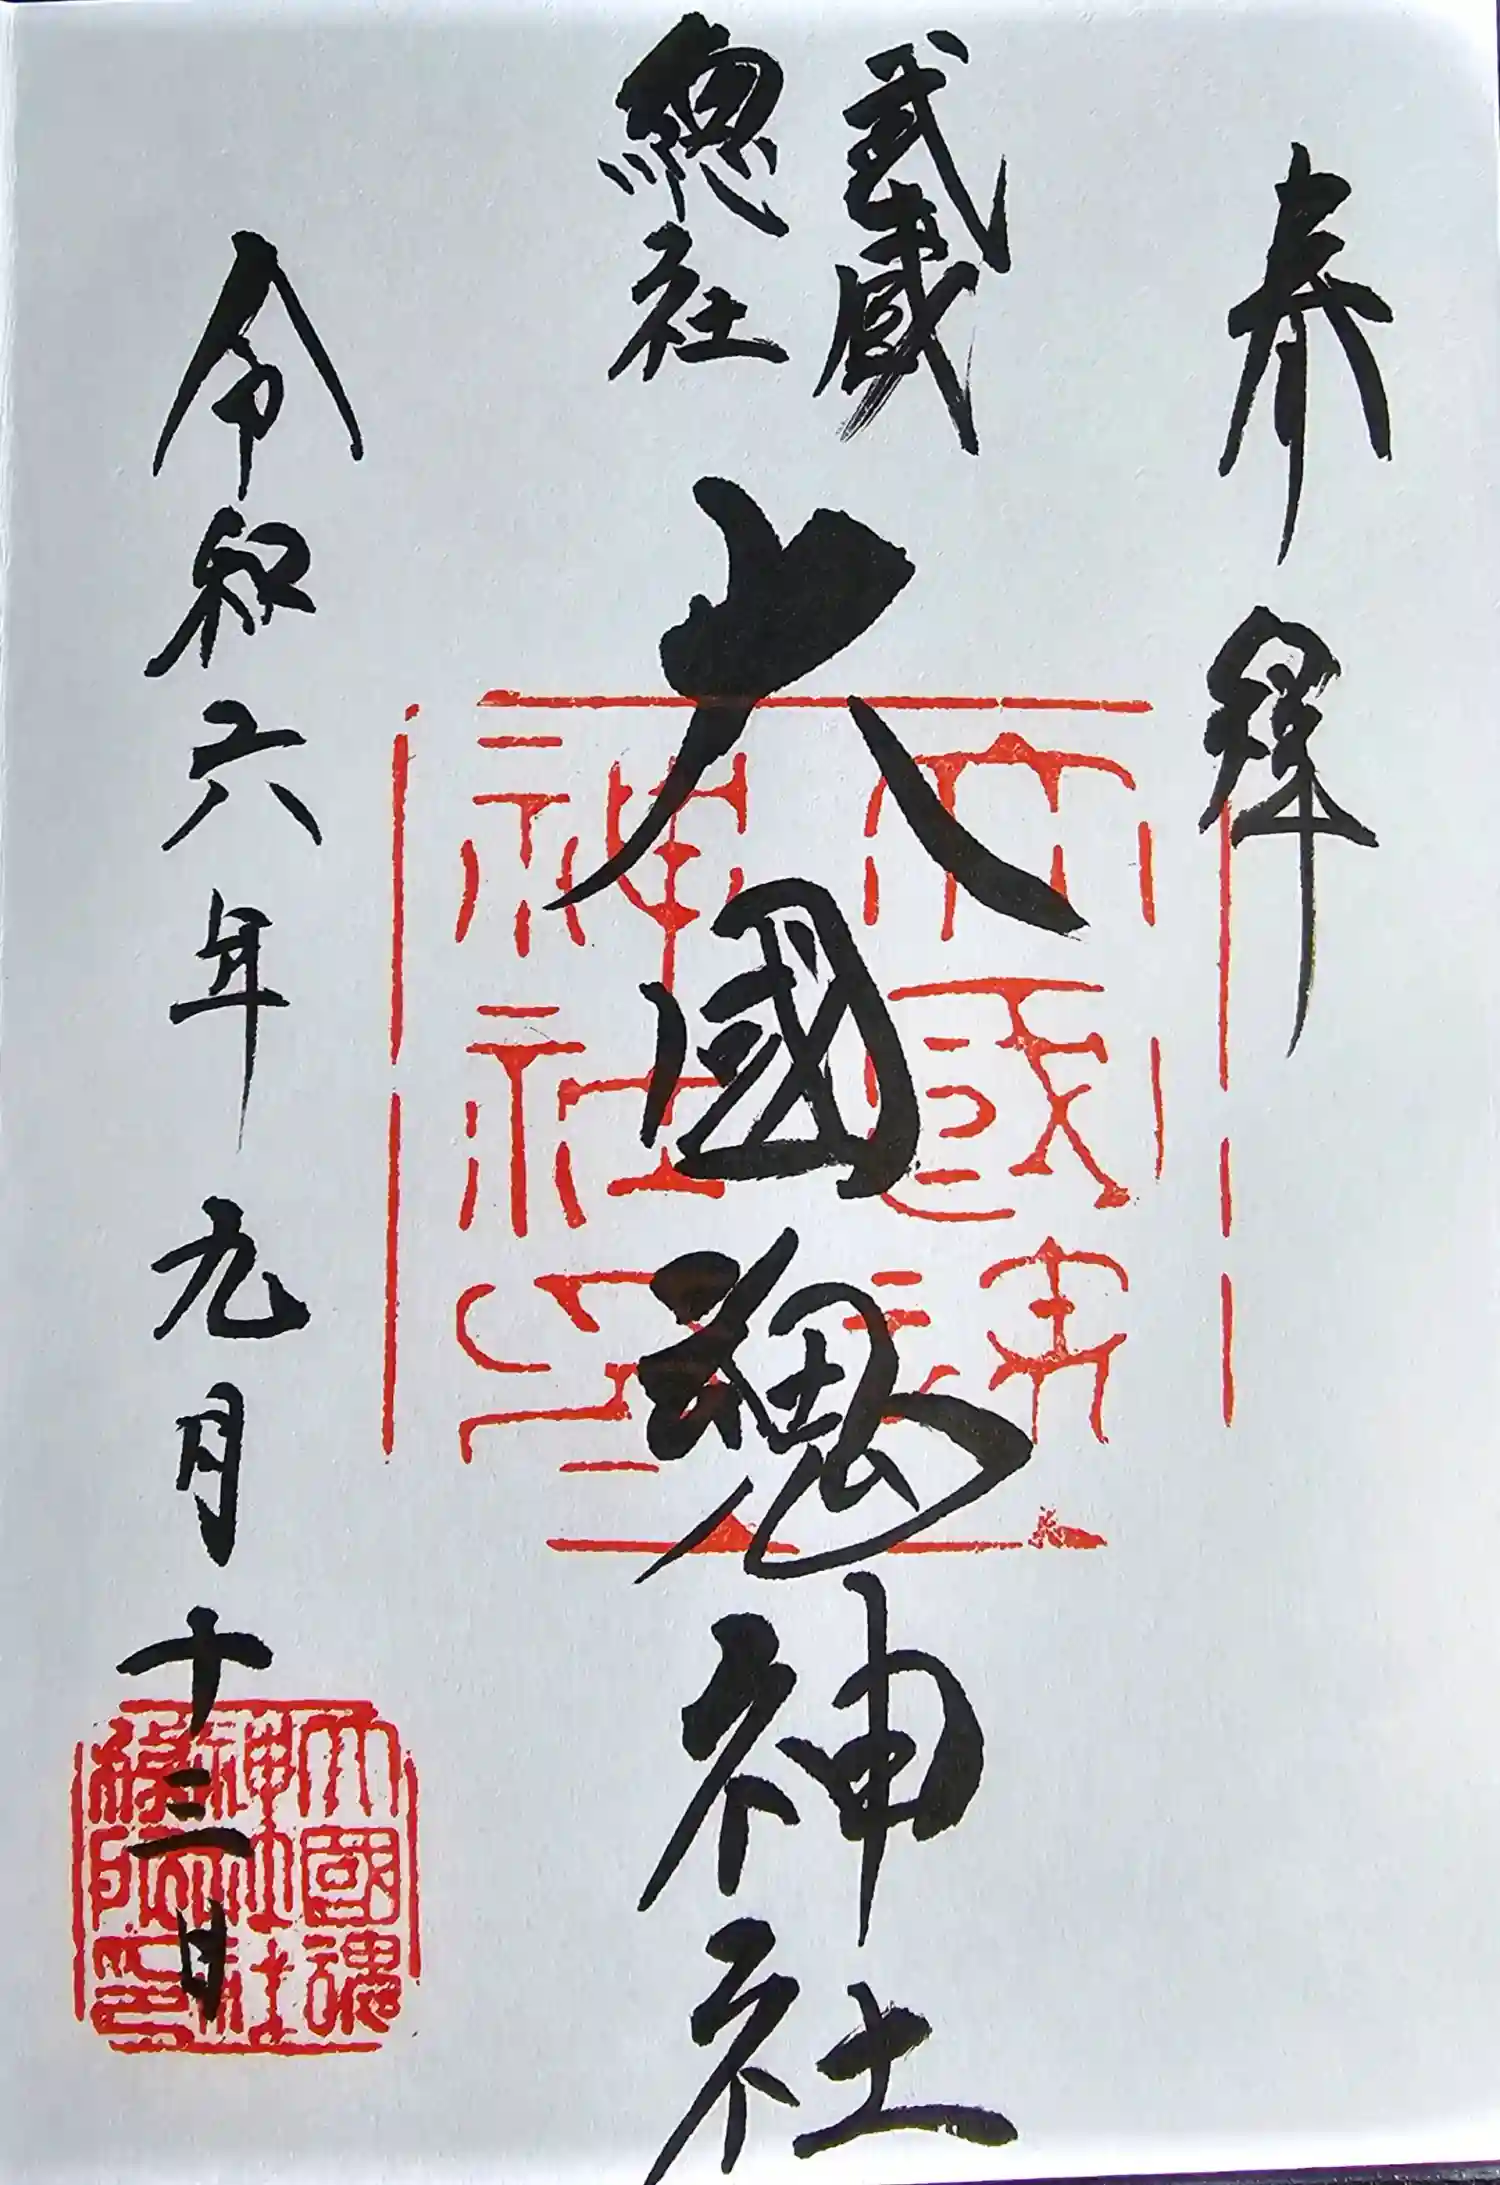 奉拝
武蔵
總社
大國魂神社
令和六年九月十二日
大國魂
神社
印
大國魂
神社
印